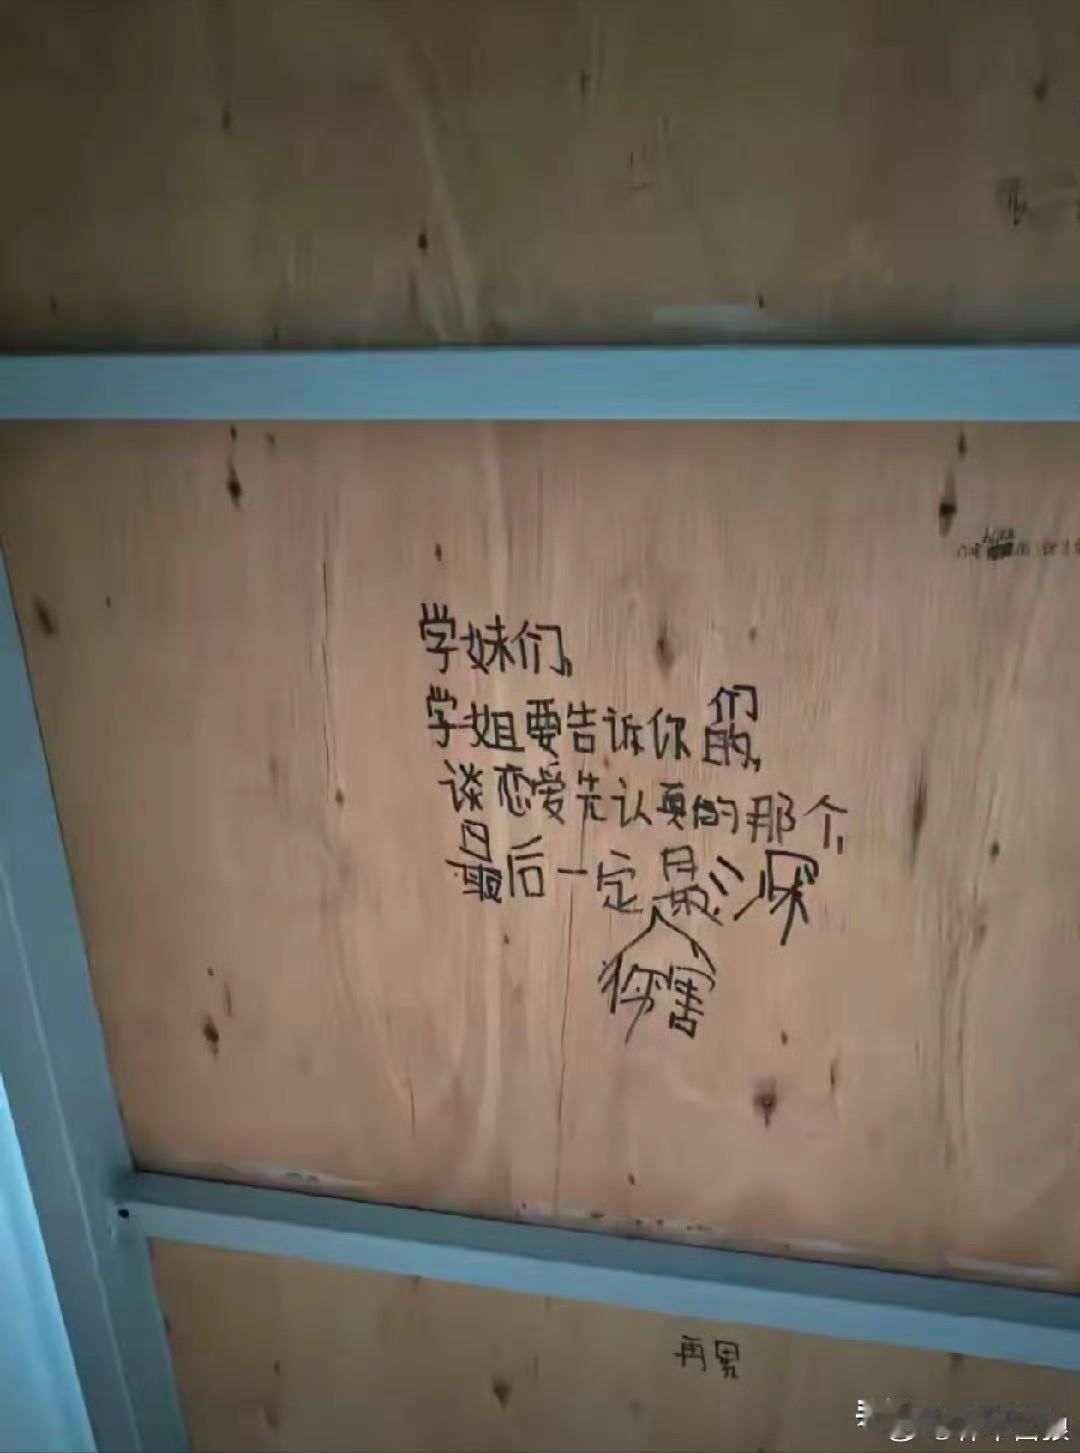 学妹们,
学姐要告诉你们的,
谈恋爱先认真的那个,
最后一定最深
伤害
再累